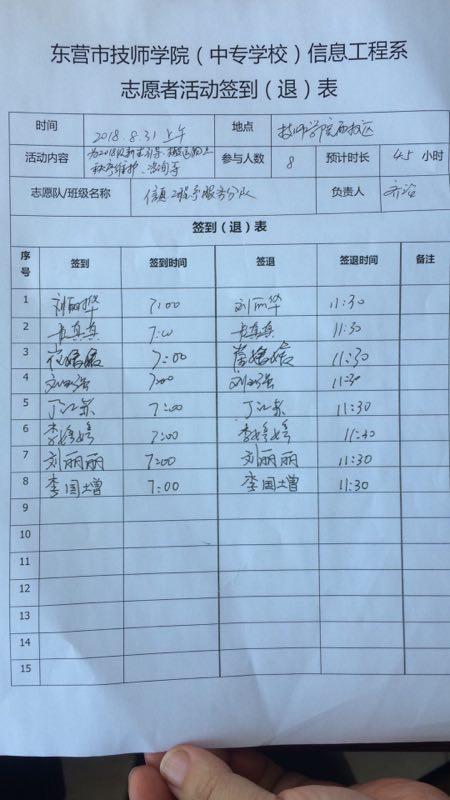 东营市技师学院（中专学校）信息工程系
志愿者活动签到（退）表
时间 2018.8.31 上午 地点 技师学院西校区
活动内容 为2018级新生引导、搬运物品 参与人数 8 预计时长 4.5 小时
秩序维护、咨询等
志愿队/班级名称 信息工程系服务分队 负责人
签到（退）表
序号 签到 签到时间 签退 签退时间 备注
1 刘丽华 7:00 刘丽华 11:30
2 7:00 11:30
3 7:00 11:30
4 7:00 11:30
5 丁江泉 7:00 丁江泉 11:30
6 李婷婷 7:00 李婷婷 11:30
7 刘丽丽 7:00 刘丽丽 11:30
8 李国增 7:00 李国增 11:30
9
10
11
12
13
14
15